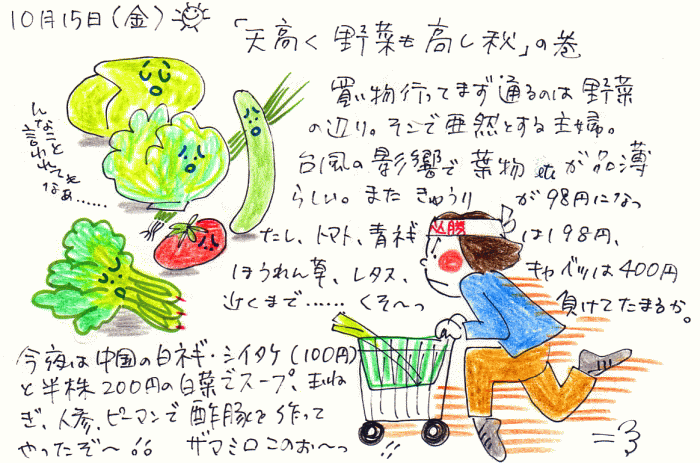 10月15日(金)
「天高く野菜も高し秋」の巻
んなこと
言われても
なぁ……
買い物行ってまず通るのは野菜
の辺り。そこで唖然とする主婦。
台風の影響で葉物etcが品薄
らしい。また きゅうり が98円になっ
たし、トマト、青ネギ は198円、
ほうれん草、レタス、 キャベツは400円
近くまで…… くそ〜っ 負けてたまるか。
必勝
今夜は中国の白ネギ・シイタケ(100円)
と半株200円の白菜でスープ、玉ね
ぎ、人参、ピーマンで酢豚を作って
やったぞ〜 ザマミロこのお〜っ